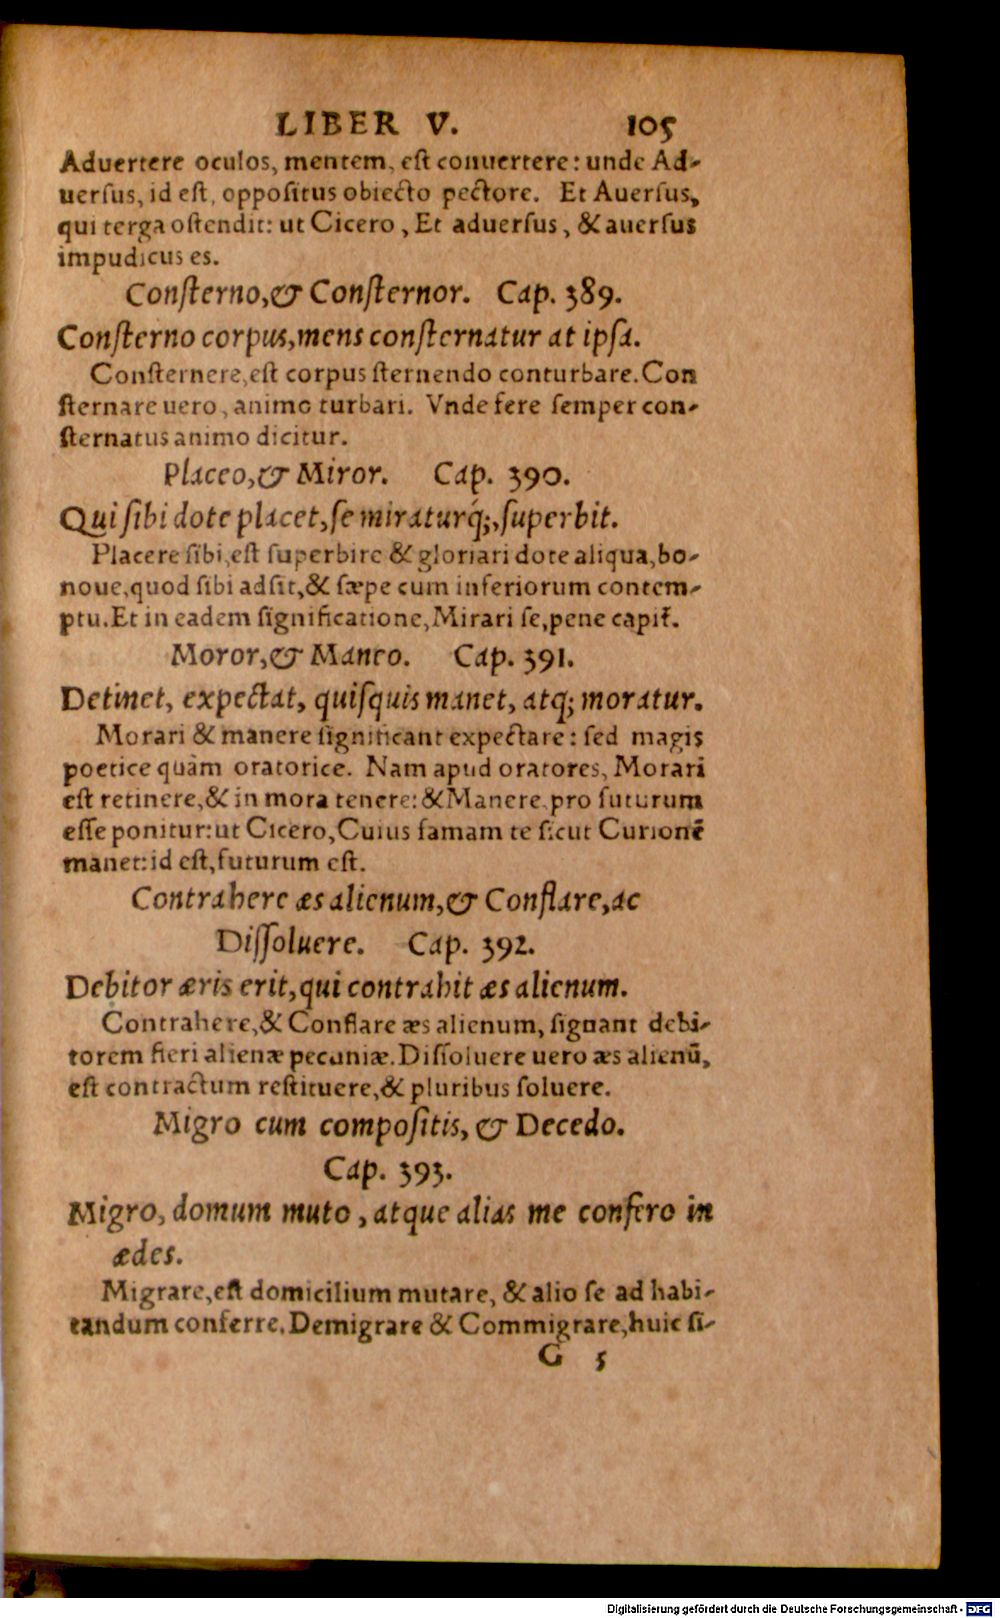 LIBER V. 105
Aduertere oculos, mentem, eſt conuertere: unde Ad-
uerſus, id eſt, oppoſitus obiecto pectore. Et Auerſus,
qui terga oſtendit: ut Cicero, Et aduerſus, & auerſus
impudicus es.
Conſterno, & Conſternor. Cap. 389.
Conſterno corpus, mens conſternatur at ipſa.
Conſternere, eſt corpus ſternendo conturbare. Con
ſternare uero, animo turbari. Vnde fere ſemper con-
ſternatus animo dicitur.
Placeo, & Miror. Cap. 390.
Qui ſibi dote placet, ſe miraturq́;, ſuperbit.
Placere ſibi, eſt ſuperbire & gloriari dote aliqua, bo-
noue, quod ſibi adſit, & ſæpe cum inferiorum contem-
ptu. Et in eadem ſignificatione, Mirari ſe, pene capiť.
Moror, & Maneo. Cap. 391.
Detinet, expectat, quiſquis manet, atq; moratur.
Morari & manere ſignificant expectare: ſed magis
poetice quàm oratorice. Nam apud oratores, Morari
eſt retinere, & in mora tenere: & Manere, pro futurum
eſſe ponitur: ut Cicero, Cuius famam te ſicut Curionē
manet: id eſt, futurum eſt.
Contrahere æs alienum, & Conflare, ac
Diſſoluere. Cap. 392.
Debitor æris erit, qui contrahit æs alienum.
Contrahere, & Conflare æs alienum, ſignant debi-
torem fieri alienæ pecuniæ. Diſſoluere uero æs alienū,
eſt contractum reſtituere, & pluribus ſoluere.
Migro cum compoſitis, & Decedo.
Cap. 393.
Migro, domum muto, atque alias me confero in
ædes.
Migrare, eſt domicilium mutare, & alio ſe ad habi-
tandum conferre. Demigrare & Commigrare, huic ſi-
G 5
Digitalisierung gefördert durch die Deutsche Forschungsgemeinschaft - DFG